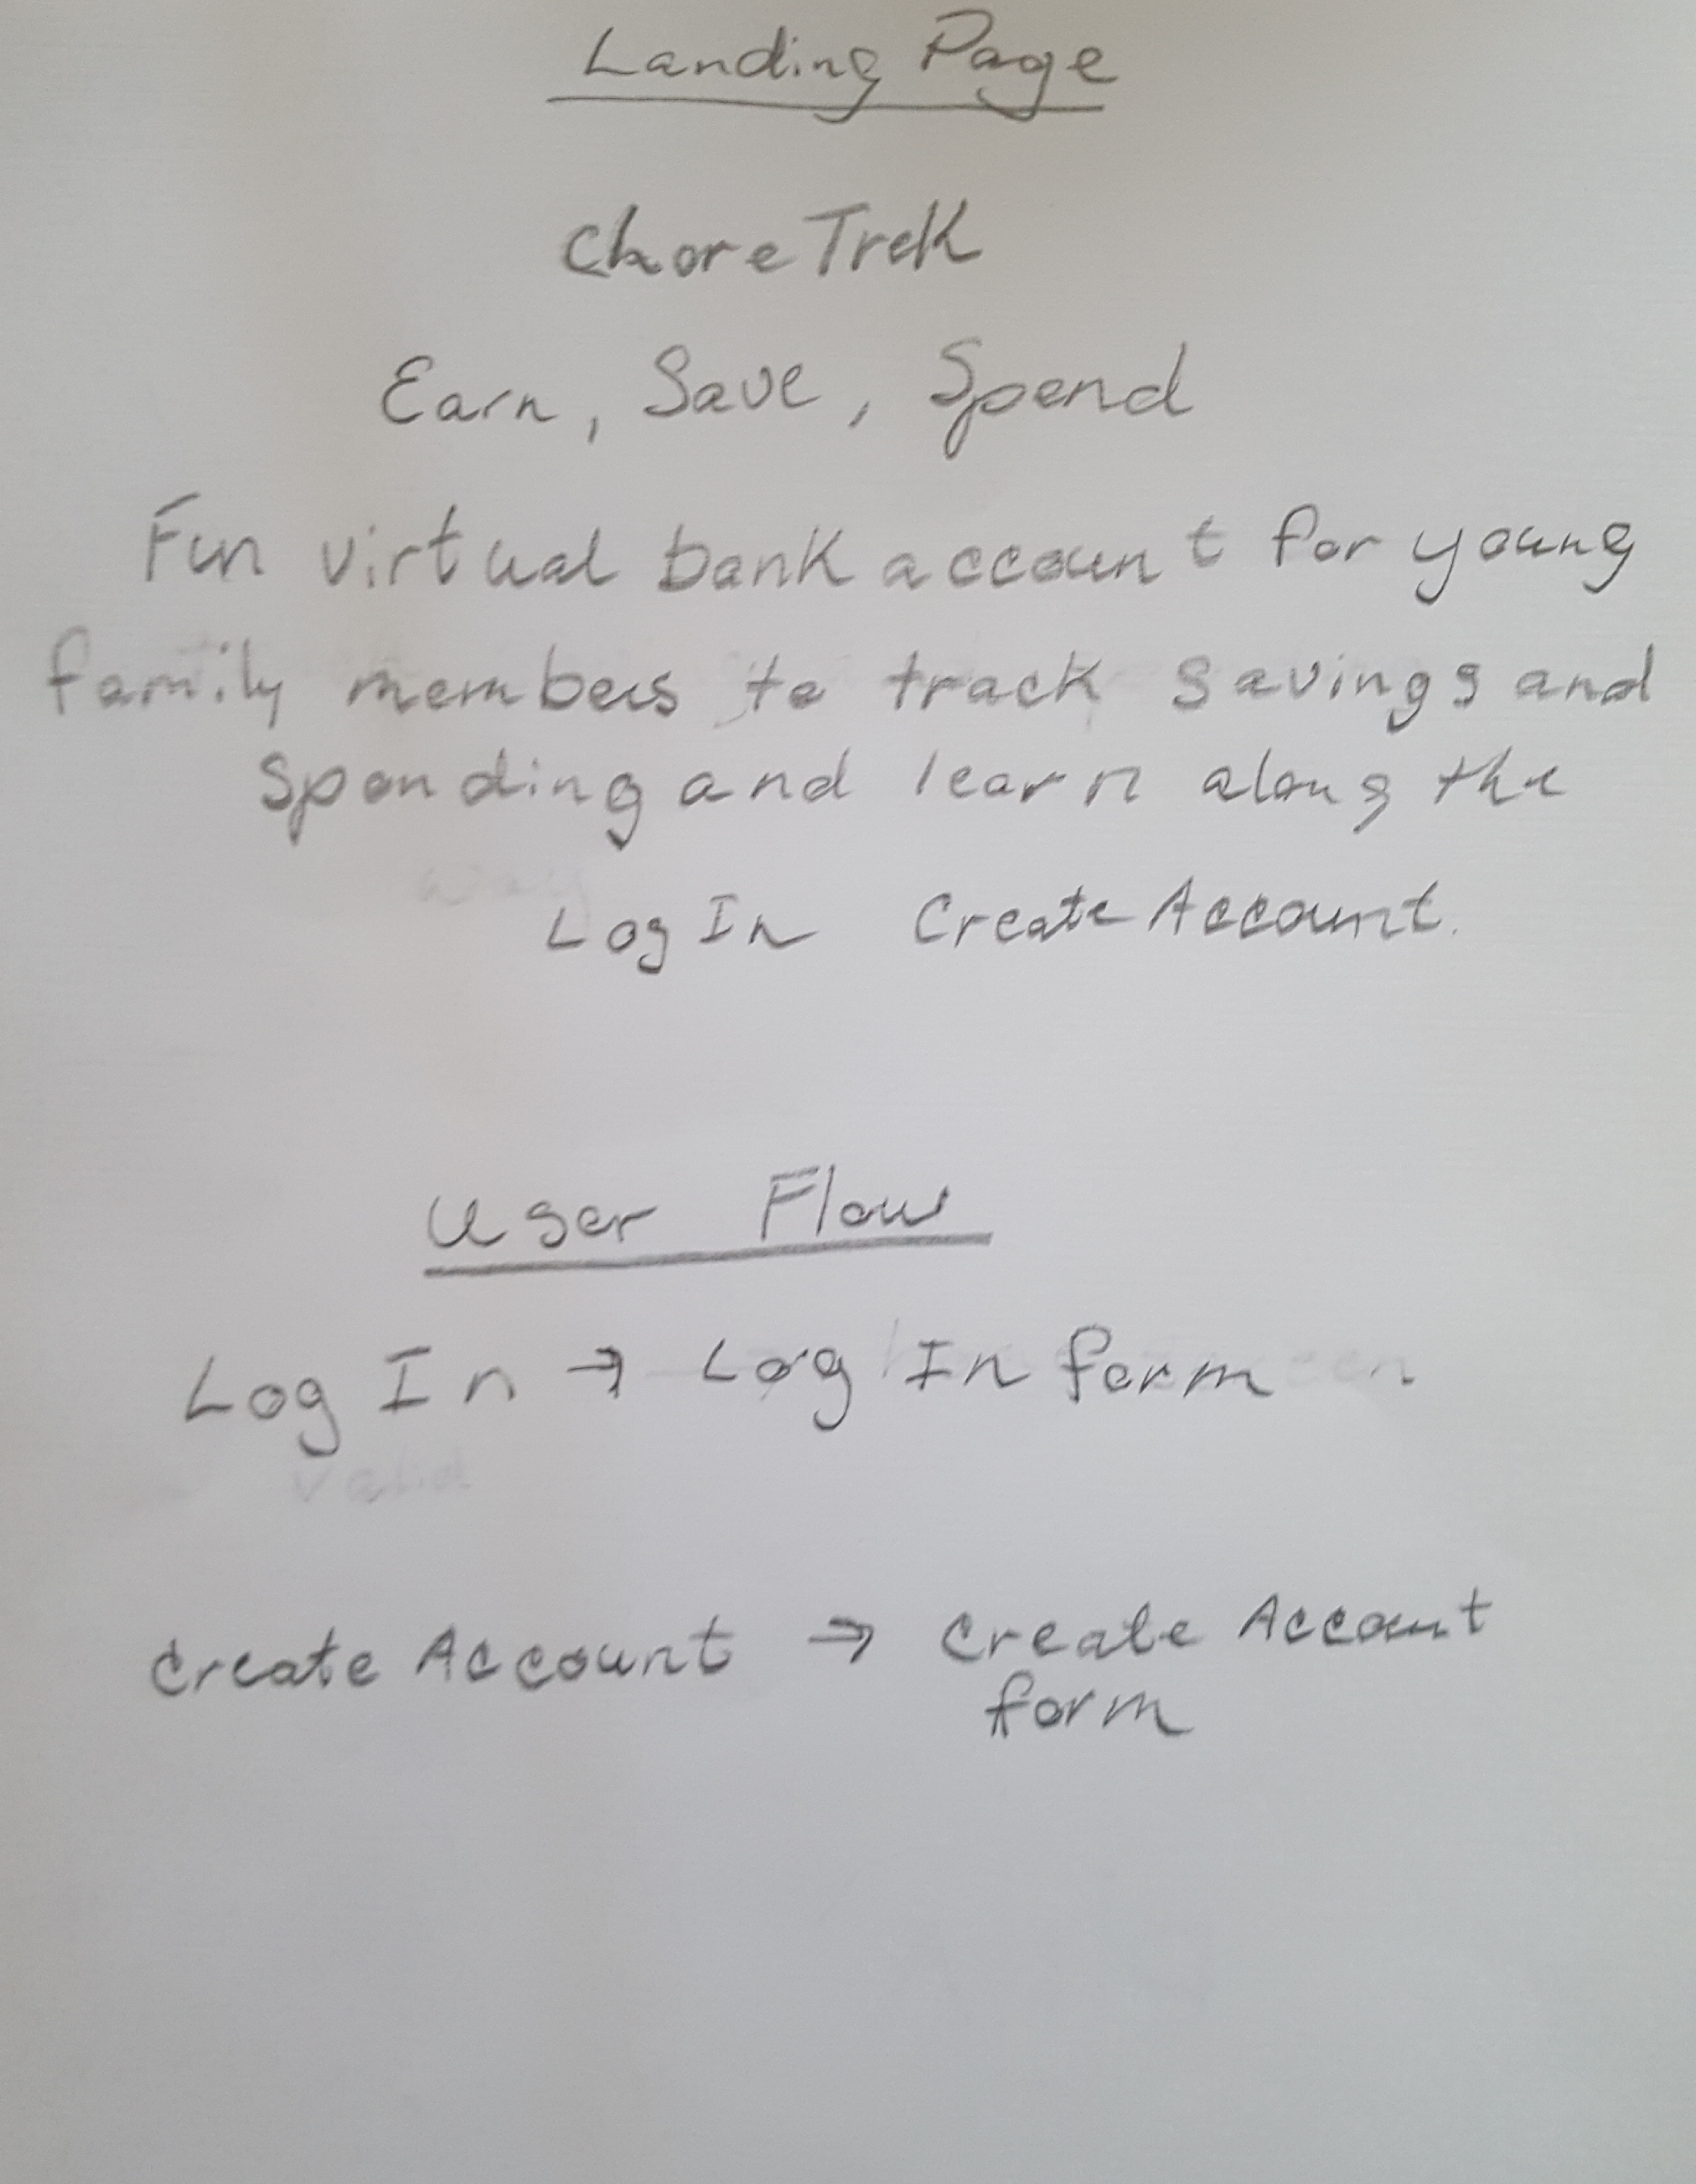 Landing Page
ChoreTrek
Earn, Save, Spend
Fun virtual bank account for young
family members to track savings and
spending and learn along the
way
Log In Create Account.
User Flow
Log In → Log In form
valid
Create Account → Create Account
form